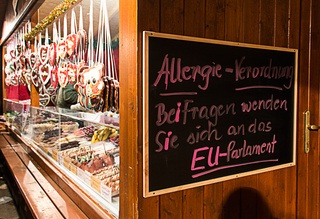 Allergie-Verordnung
Bei Fragen wenden
Sie sich an das
EU-Parlament